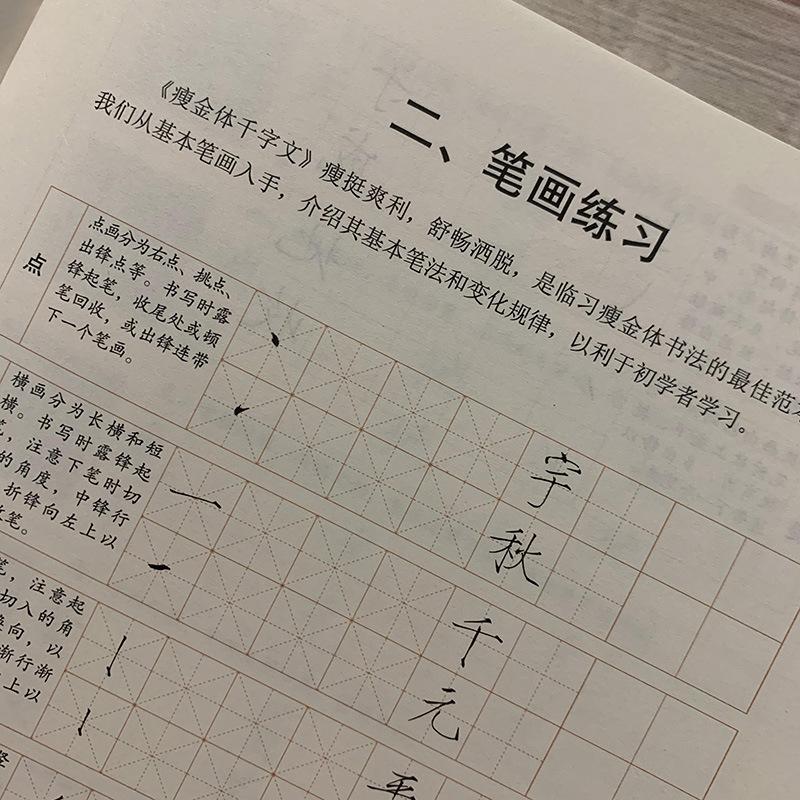 二、笔画练习
《瘦金体千字文》瘦挺爽利，舒畅洒脱，是临习瘦金体书法的最佳范
我们从基本笔画入手，介绍其基本笔法和变化规律，以利于初学者学习。
点
点画分为右点、挑点、
出锋点等。书写时露
锋起笔，收尾处或顿
笔回收，或出锋连带
下一个笔画。
宇
秋
横画分为长横和短
横。书写时露锋起
笔，注意下笔时切
的角度，中锋行
折锋向左上以
收笔。
千
元
笔，注意起
切入的角
向，以
渐行渐
上以